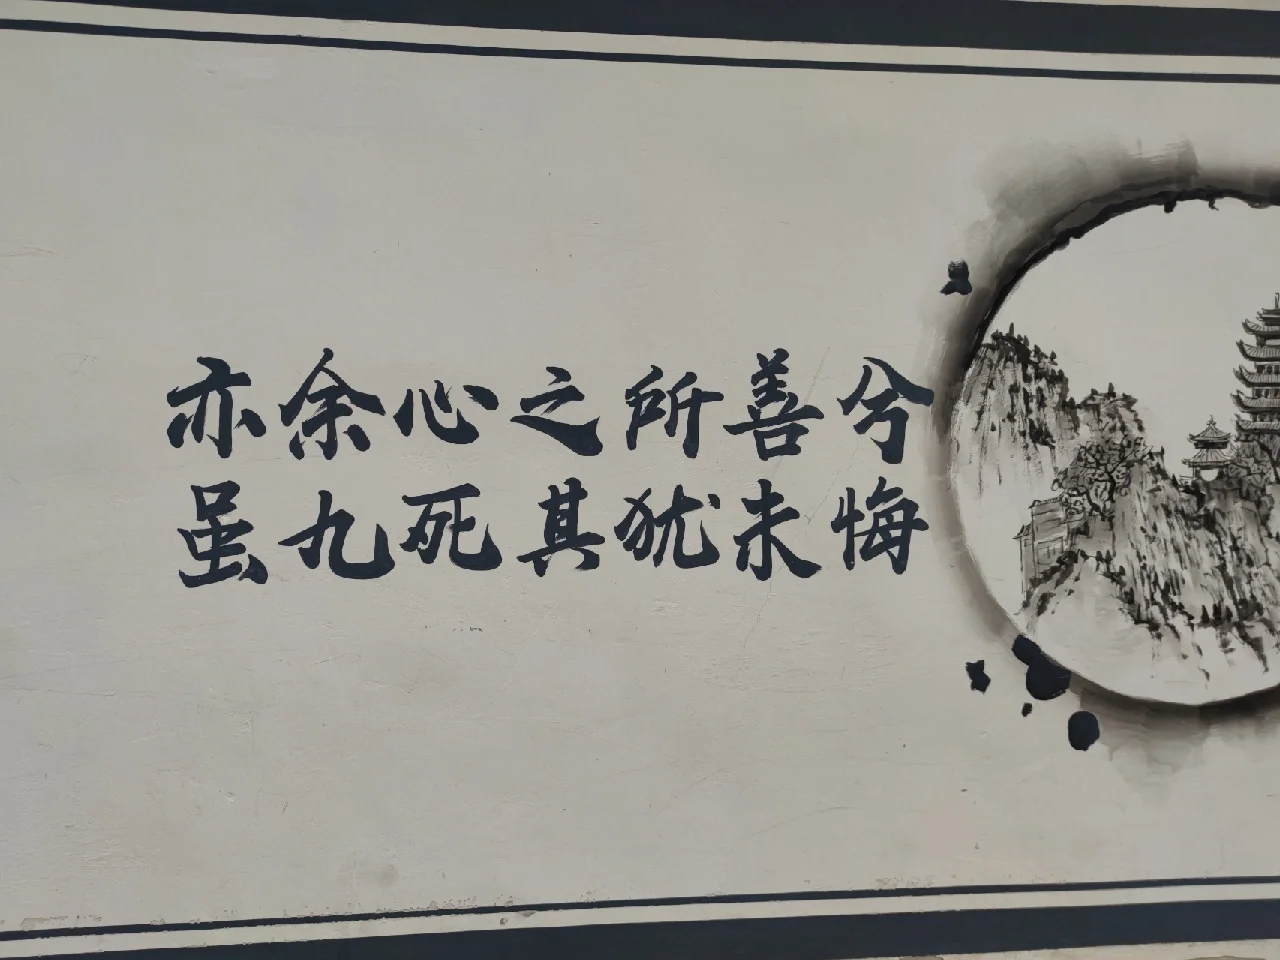 亦余心之所善兮
虽九死其犹未悔